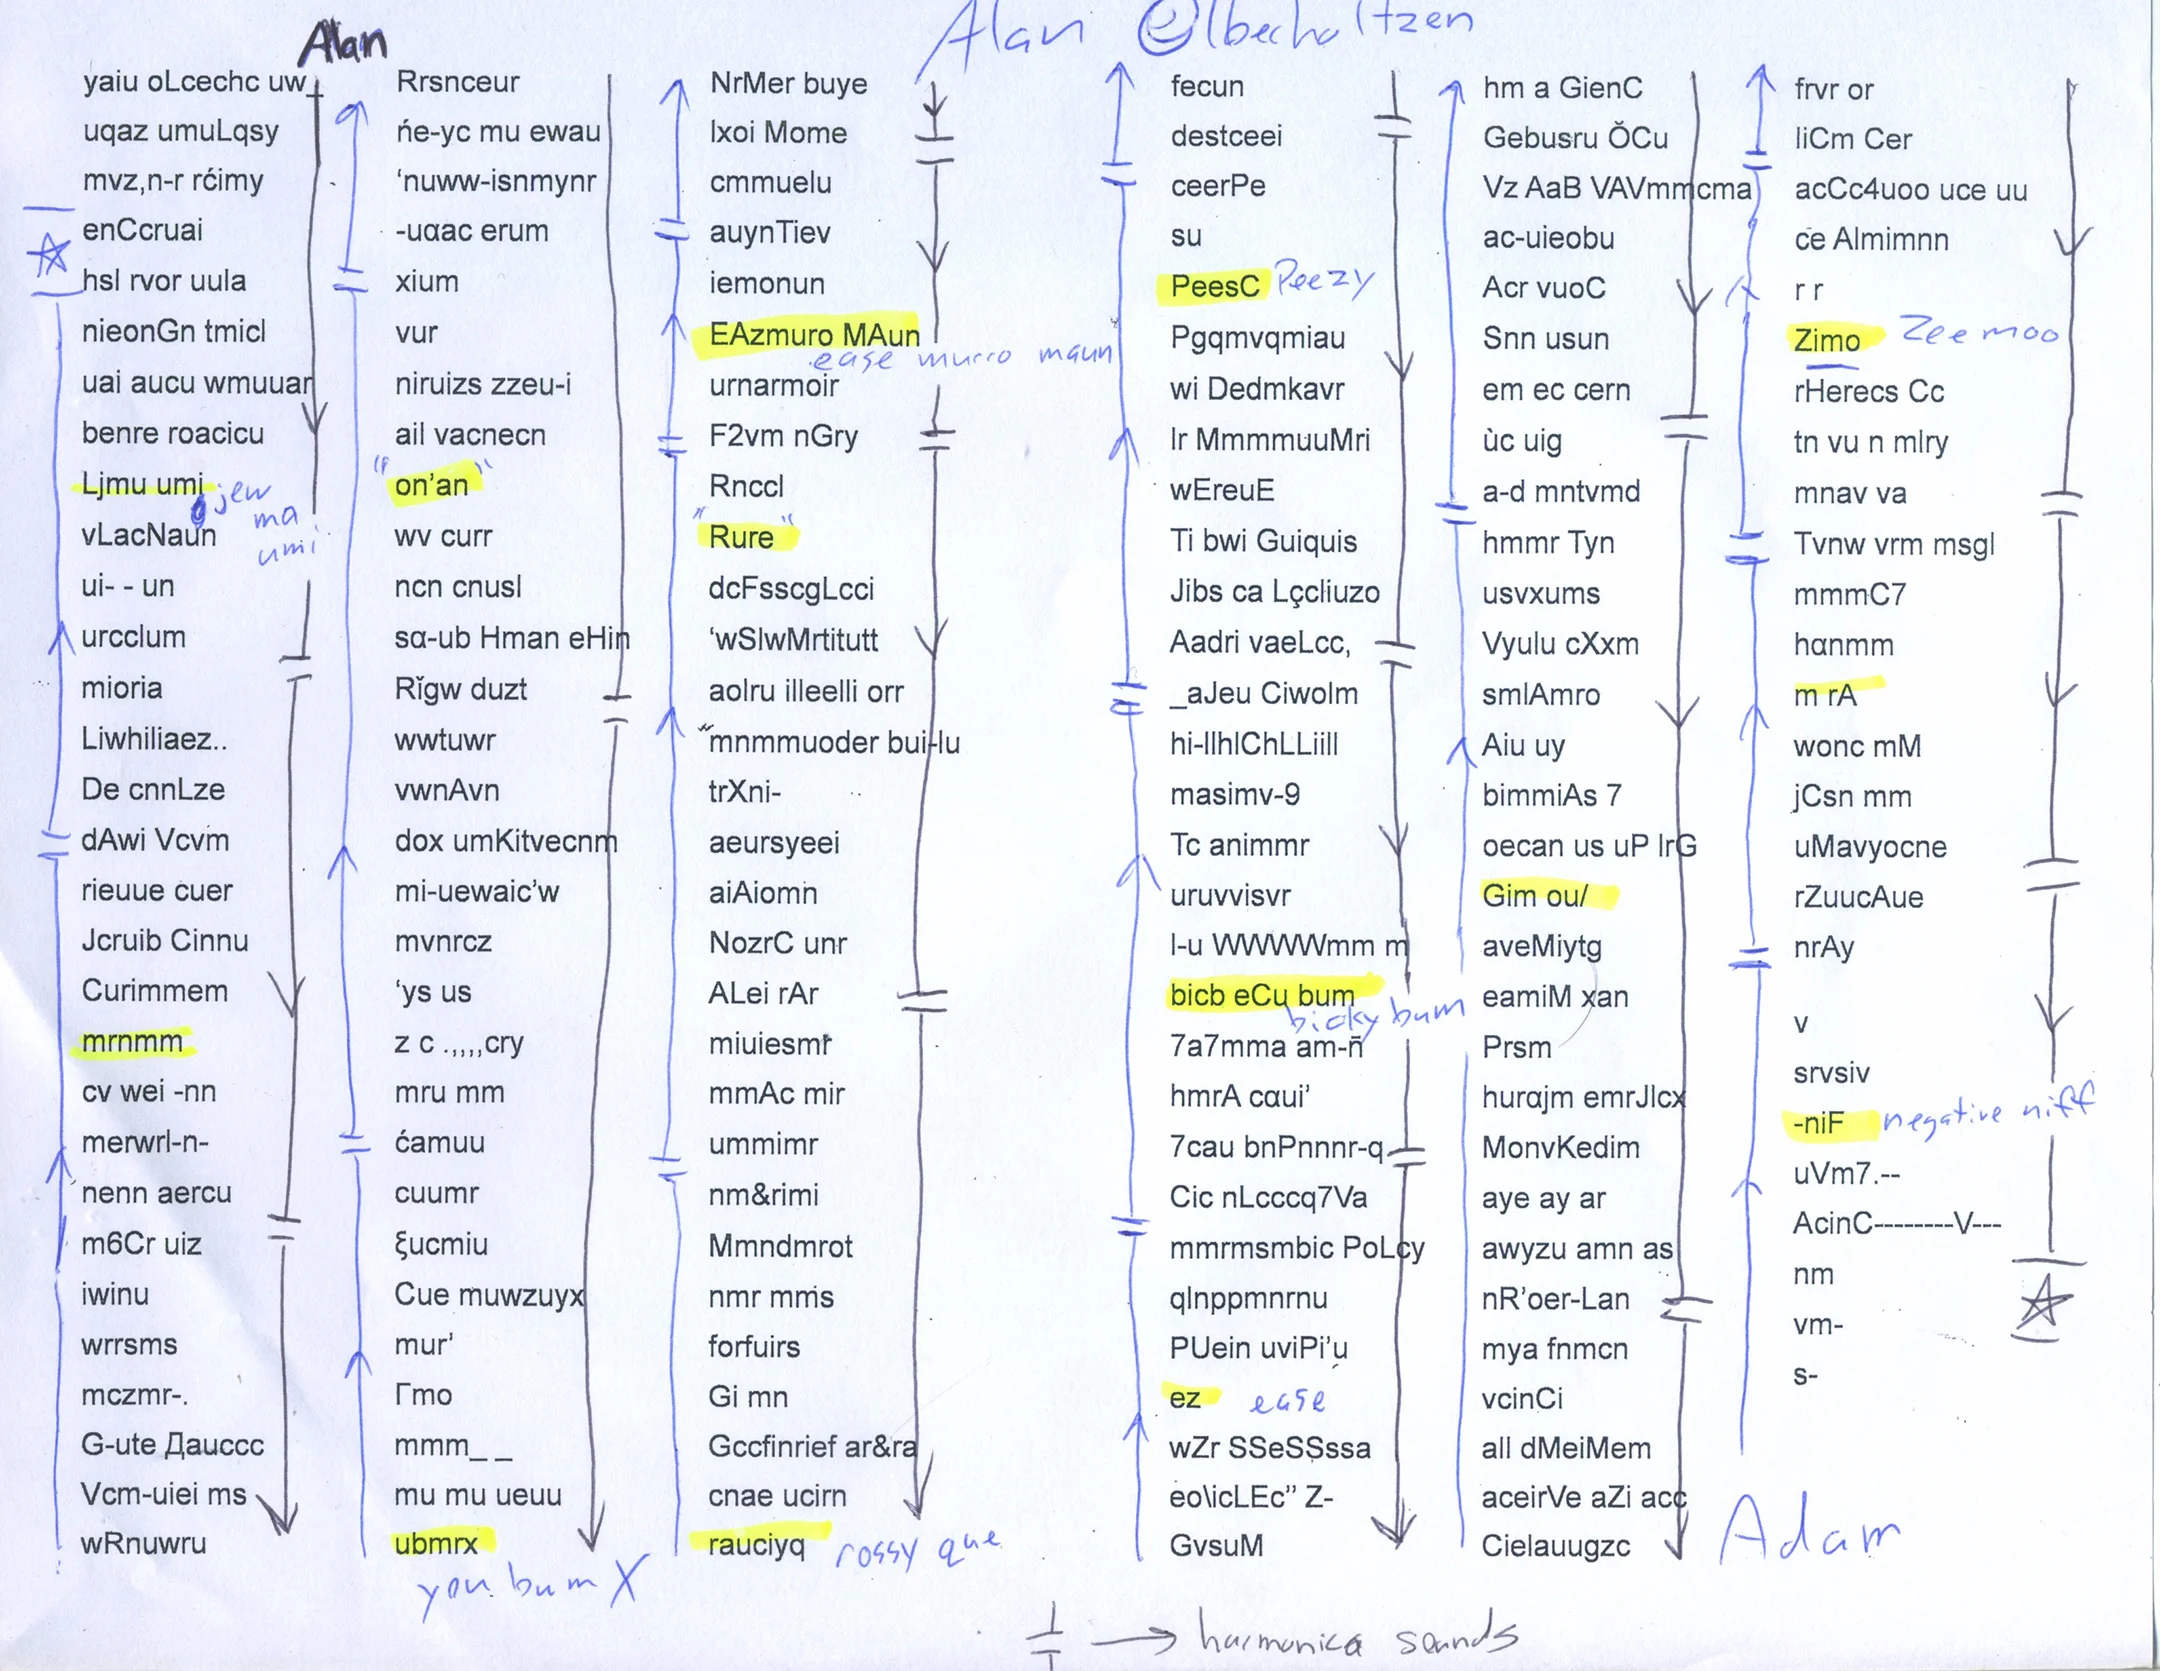 Alan
Alan
yaiu oLcechc uw_
uqaz umuLqsy
mvz,n-r rćimy
enCcruai
hsl rvor uula
nieonGn tmicl
uai aucu wmuuar
benre roacicu
Ljmu umi
jew
ma
umi
vLacNaun
ui- - un
urcclum
mioria
Liwhiliaez..
De cnnLze
dAwi Vcvm
rieuue cuer
Jcruib Cinnu
Curimmem
mrnmm
cv wei -nn
merwrl-n-
nenn aercu
m6Cr uiz
iwinu
wrrsms
mczmr-.
G-ute Дauccc
Vcm-uiei ms
wRnuwru
Rrsnceur
ńe-yc mu ewau
‘nuww-isnmynr
-uɑac erum
xium
vur
niruizs zzeu-i
ail vacnecn
"on’an"
wv curr
ncn cnusl
sɑ-ub Hman eHin
Rǐgw duzt
wwtuwr
vwnAvn
dox umKitvecnm
mi-uewaic’w
mvnrcz
‘ys us
z c .,,,,cry
mru mm
ćamuu
cuumr
ξucmiu
Cue muwzuyx
mur’
Гmo
mmm_ _
mu mu ueuu
ubmrx
you bum X
NrMer buye
lxoi Mome
cmmuelu
auynTiev
iemonun
EAzmuro MAun
ease murro maun
urnarmoir
F2vm nGry
Rnccl
"Rure"
dcFsscgLcci
‘wSlwMrtitutt
aolru illeelli orr
“mnmmuoder bui-lu
trXni-
aeursyeei
aiAiomn
NozrC unr
ALei rAr
miuiesmf
mmAc mir
ummimr
nm&rimi
Mmndmrot
nmr mms
forfuirs
Gi mn
Gccfinrief ar&ra
cnae ucirn
rauciyq rossy que
fecun
destceei
ceerPe
su
PeesC Peezy
Pgqmvqmiau
wi Dedmkavr
lr MmmmuuMri
wEreuE
Ti bwi Guiquis
Jibs ca Lçcliuzo
Aadri vaeLcc,
_aJeu Ciwolm
hi-llhlChLLiill
masimv-9
Tc animmr
uruvvisvr
l-u WWWWmm m
bicb eCu bum
bicky bum
7a7mma am-ñ
hmrA cɑui’
7cau bnPnnnr-q
Cic nLcccq7Va
mmrmsmbic PoLcy
qlnppmnrnu
PUein uviPi’u
ez ease
wZr SSeSSssa
eo\icLEc” Z-
GvsuM
hm a GienC
Gebusru ŎCu
Vz AaB VAVmmcma
ac-uieobu
Acr vuoC
Snn usun
em ec cern
ùc uig
a-d mntvmd
hmmr Tyn
usvxums
Vyulu cXxm
smlAmro
Aiu uy
bimmiAs 7
oecan us uP lrG
Gim ou/
aveMiytg
eamiM xan
Prsm
hurɑjm emrJlcx
MonvKedim
aye ay ar
awyzu amn as
nR’oer-Lan
mya fnmcn
vcinCi
all dMeiMem
aceirVe aZi acc
Cielauugzc
frvr or
liCm Cer
acCc4uoo uce uu
ce Almimnn
r r
Zimo Zee moo
rHerecs Cc
tn vu n mlry
mnav va
Tvnw vrm msgl
mmmC7
hɑnmm
m rA
wonc mM
jCsn mm
uMavyocne
rZuucAue
nrAy
v
srvsiv
-niF negative niff
uVm7.--
AcinC--------V---
nm
vm-
s-
Adam
harmonica sounds